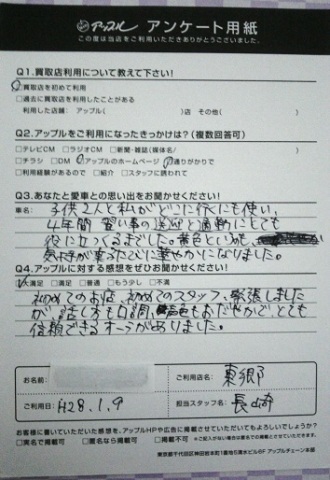 アップル アンケート用紙
この度は当店をご利用いただきありがとうございました。
Q1.買取店利用について教えて下さい!
□買取店を初めて利用
□過去に買取店を利用したことがある
利用した店舗: アップル( )店 その他( )
Q2.アップルをご利用になったきっかけは?(複数回答可)
□テレビCM □ラジオCM □新聞・雑誌(媒体名/ )
□チラシ □DM □アップルのホームページ □通りがかりで
□利用経験があるので □紹介 □スタッフに誘われて
Q3.あなたと愛車との思い出をお聞かせください!
車名: 子供2人と私がどこに行くにも使い、
4年間 習い事の送迎と通勤にとても
役に立つくるまでした。黄色というのも、
気持が乗るたびに華やかになりました。
Q4.アップルに対する感想をぜひお聞かせください!
□大満足 □満足 □普通 □もう少し □不満
初めてのお店、初めてのスタッフ、緊張しました
が、話し方も口調、も おだやかで とても
信頼できるオーラがありました。
お名前:
ご利用店名: 東郷
ご利用日: H28.1.9
担当スタッフ名: 長崎
お客様に書いていただいた感想を、アップルHPや広告に掲載させていただいてもよろしいでしょうか?
□実名で掲載可 □匿名なら掲載可 □掲載不可
東京都千代田区神田根本町1番地5清水ビル6F アップルチェーン本部